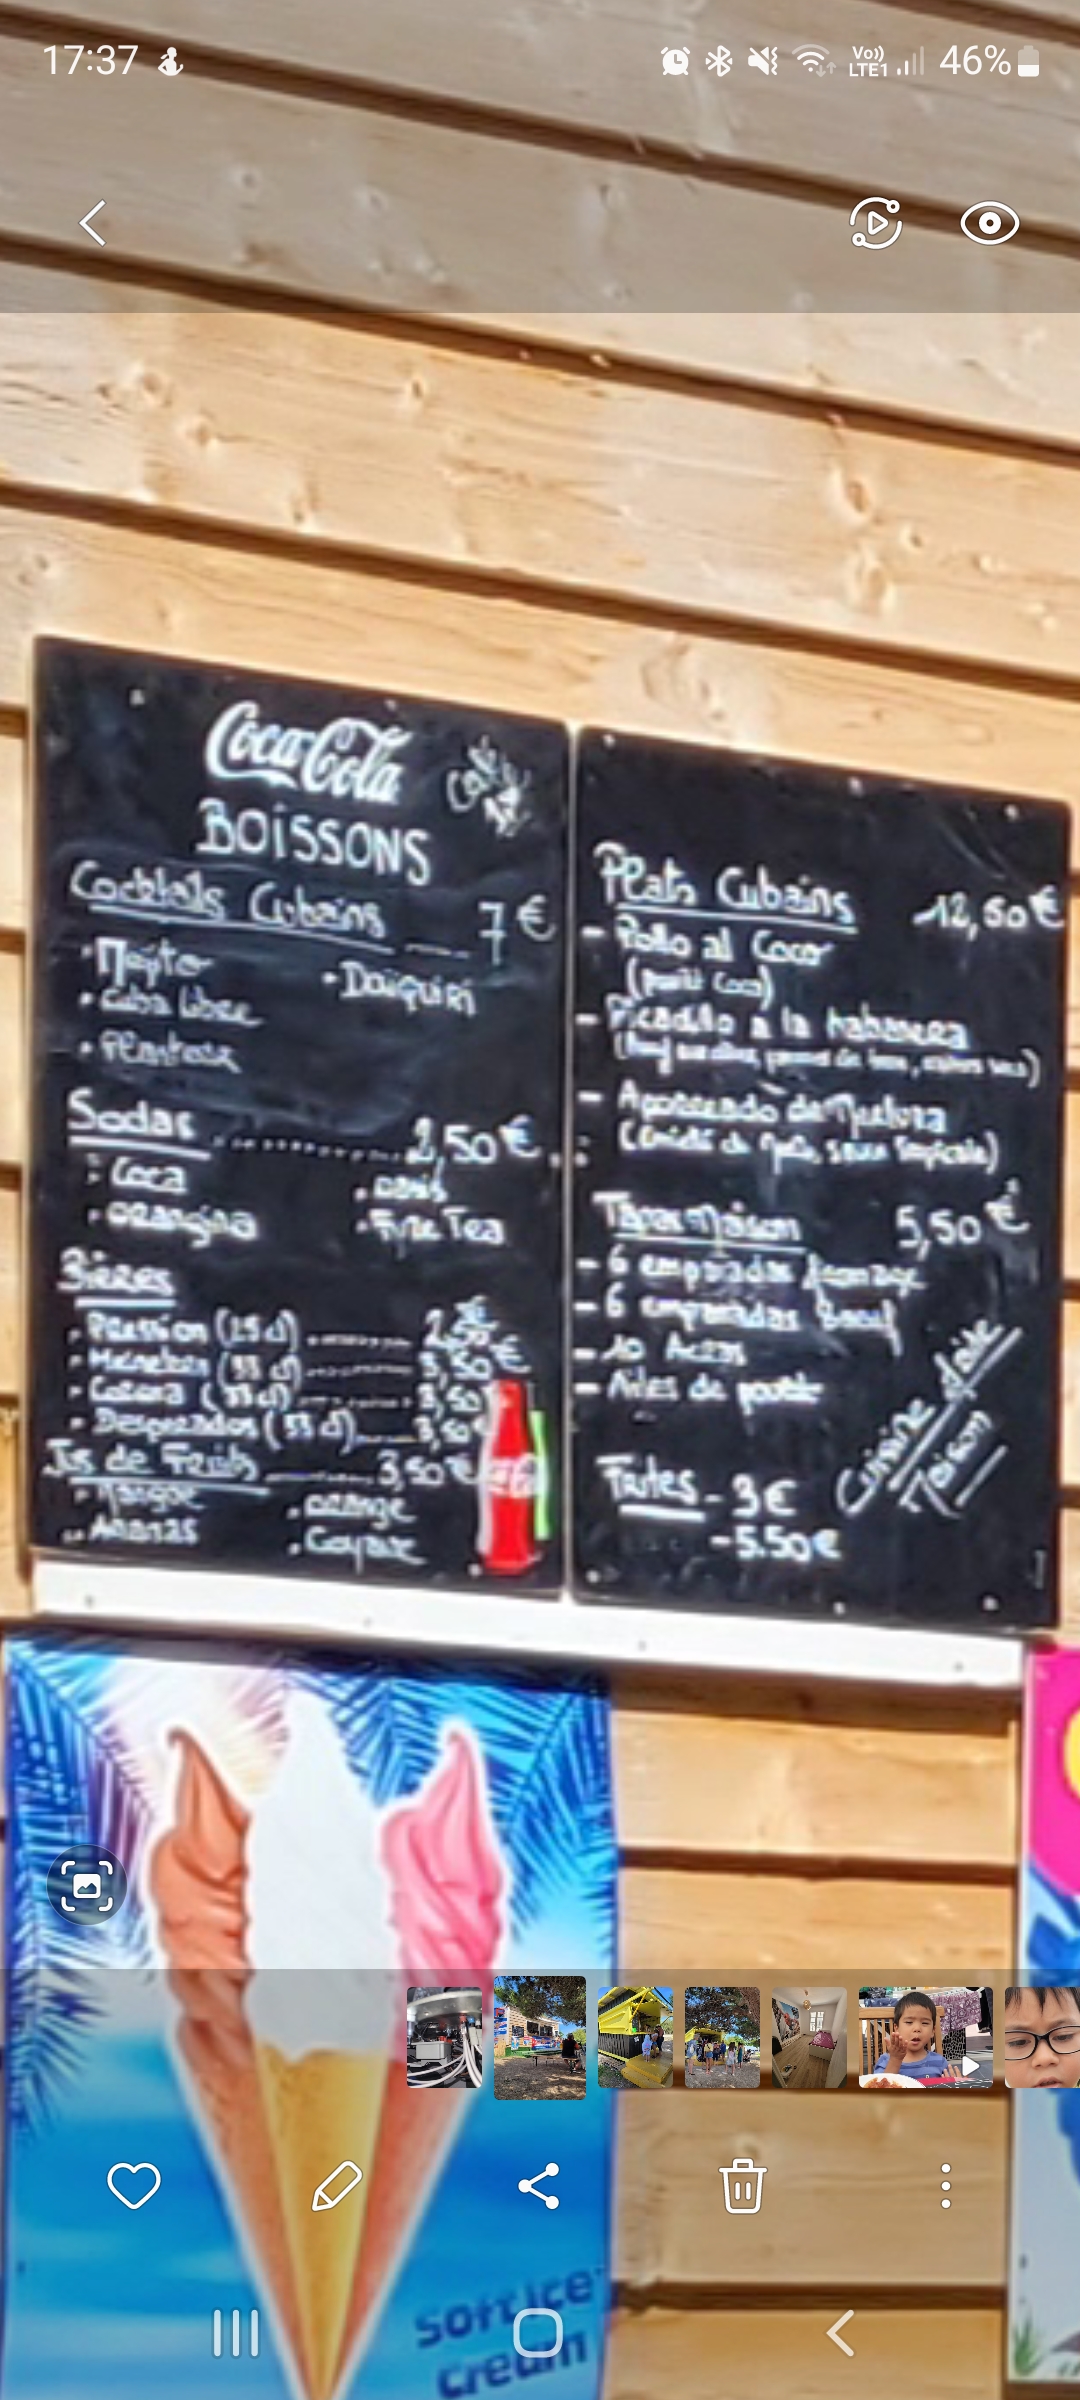 17:37
Vo)) LTE1 46%
Coca-Cola
Café
BOISSONS
Cocktails Cubains 7€
• Mojito • Daïquiri
• Cuba Libre
• Planteur
Sodas 2,50€
• Coca • Oasis
• Orangina • Fuze Tea
Bières
• Pression (25 cl) 2,50€
• Heineken (33 cl) 3,50€
• Corona (33 cl) 3,50€
• Desperados (33 cl) 3,50€
Jus de Fruits 3,50€
• Mangue • Orange
• Ananas • Goyave
Plats Cubains 12,50€
- Pollo al Coco
(poulet Coco)
- Picadillo a la habanera
- Aporreado de Merluza
Tapas Maison 5,50€
- 6 empanadas fromage
- 6 empanadas Boeuf
- 10 Acras
- Ailes de poulet
Cuisine faite Maison
Frites - 3€
- 5.50€
Soft Ice
Cream